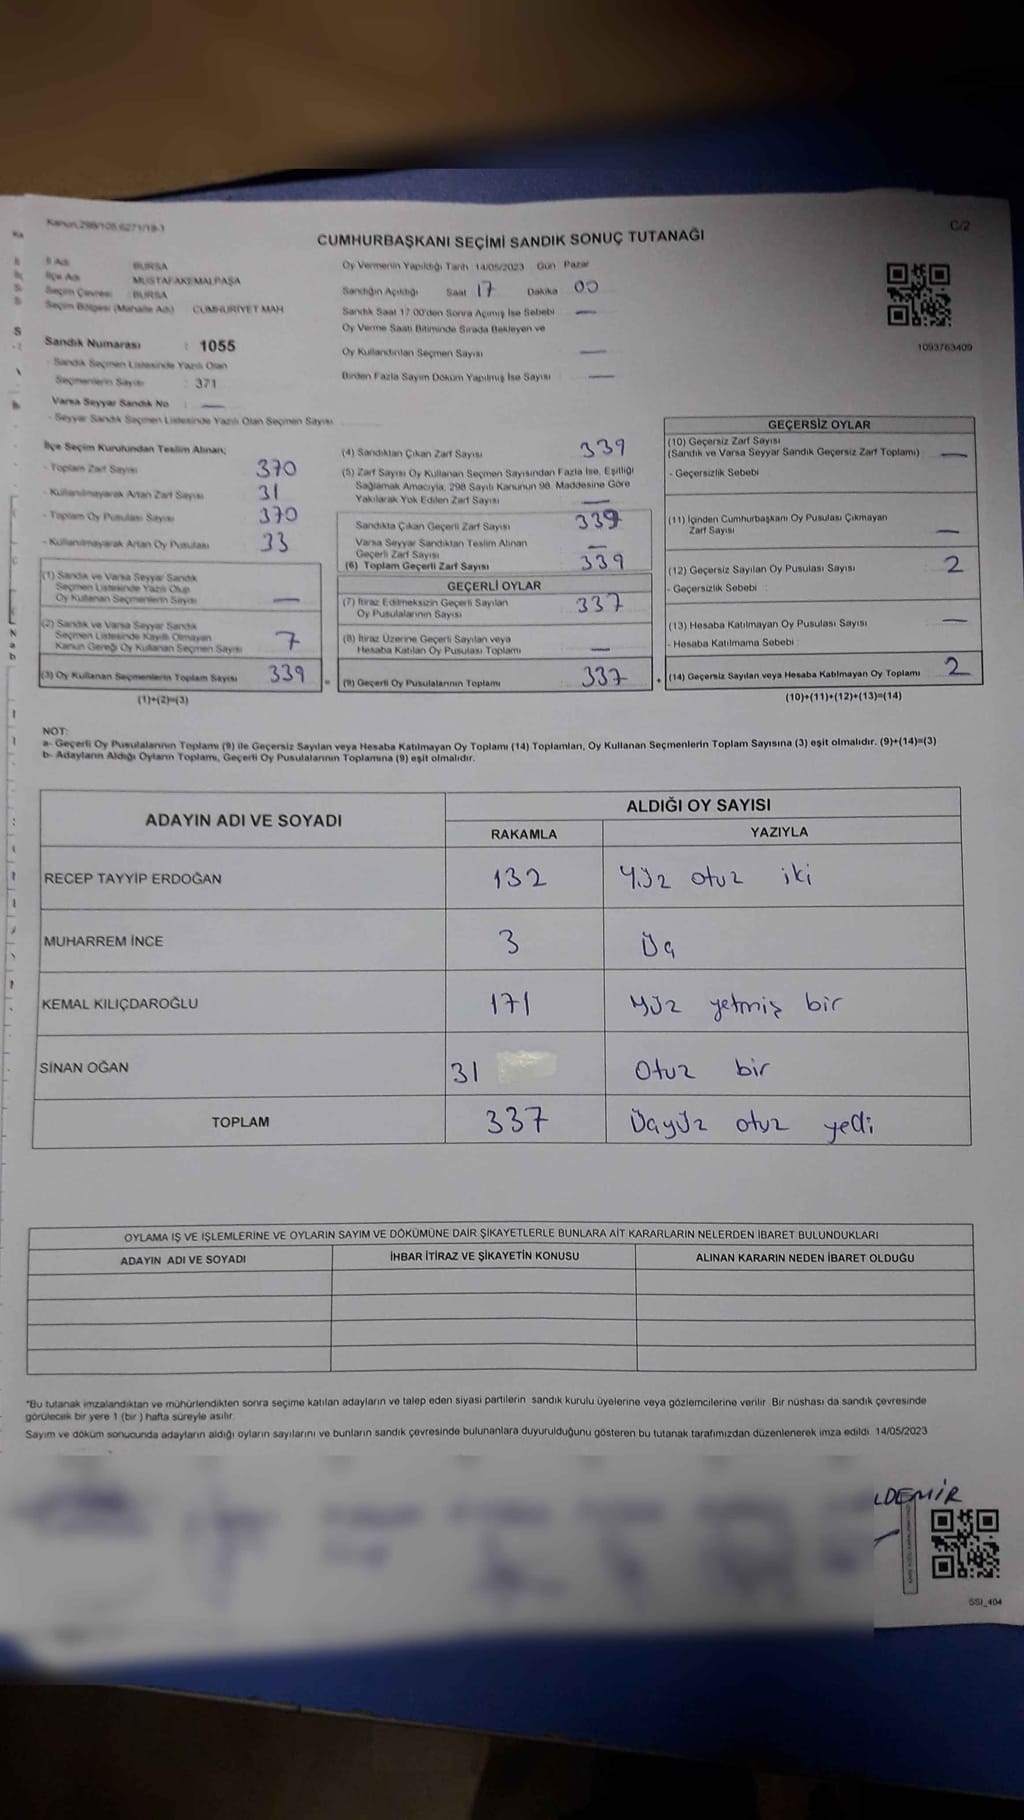 Kanun,298/105,6271/19-1
C/2
CUMHURBAŞKANI SEÇİMİ SANDIK SONUÇ TUTANAĞI
İl Adı BURSA
İlçe Adı MUSTAFAKEMALPAŞA
Seçim Çevresi : BURSA
Seçim Bölgesi (Mahalle Adı) CUMHURİYET MAH
Sandık Numarası : 1055
- Sandık Seçmen Listesinde Yazılı Olan
Seçmenlerin Sayısı : 371
Varsa Seyyar Sandık No : —
- Seyyar Sandık Seçmen Listesinde Yazılı Olan Seçmen Sayısı
Oy Vermenin Yapıldığı Tarih 14/05/2023 Gün Pazar
Sandığın Açıldığı Saat 17 Dakika 00
Sandık Saat 17 00'den Sonra Açılmış İse Sebebi —
Oy Verme Saati Bitiminde Sırada Bekleyen ve
Oy Kullandırılan Seçmen Sayısı —
Birden Fazla Sayım Döküm Yapılmış İse Sayısı —
1093763409
İlçe Seçim Kurulundan Teslim Alınan;
- Toplam Zarf Sayısı 370
- Kullanılmayarak Artan Zarf Sayısı 31
- Toplam Oy Pusulası Sayısı 370
- Kullanılmayarak Artan Oy Pusulası 33
(1) Sandık ve Varsa Seyyar Sandık
Seçmen Listesinde Yazılı Olup
Oy Kullanan Seçmenlerin Sayısı —
(2) Sandık ve Varsa Seyyar Sandık
Seçmen Listesinde Kayıtlı Olmayan
Kanun Gereği Oy Kullanan Seçmen Sayısı 7
(3) Oy Kullanan Seçmenlerin Toplam Sayısı 339
(1)+(2)=(3)
(4) Sandıktan Çıkan Zarf Sayısı 339
(5) Zarf Sayısı Oy Kullanan Seçmen Sayısından Fazla İse, Eşitliği
Sağlamak Amacıyla, 298 Sayılı Kanunun 98. Maddesine Göre
Yakılarak Yok Edilen Zarf Sayısı —
Sandıkta Çıkan Geçerli Zarf Sayısı 339
Varsa Seyyar Sandıktan Teslim Alınan
Geçerli Zarf Sayısı —
(6) Toplam Geçerli Zarf Sayısı 339
GEÇERLİ OYLAR
(7) İtiraz Edilmeksizin Geçerli Sayılan
Oy Pusulalarının Sayısı 337
(8) İtiraz Üzerine Geçerli Sayılan veya
Hesaba Katılan Oy Pusulası Toplamı —
(9) Geçerli Oy Pusulalarının Toplamı 337
GEÇERSİZ OYLAR
(10) Geçersiz Zarf Sayısı
(Sandık ve Varsa Seyyar Sandık Geçersiz Zarf Toplamı) —
- Geçersizlik Sebebi
(11) İçinden Cumhurbaşkanı Oy Pusulası Çıkmayan
Zarf Sayısı —
(12) Geçersiz Sayılan Oy Pusulası Sayısı 2
- Geçersizlik Sebebi
(13) Hesaba Katılmayan Oy Pusulası Sayısı —
- Hesaba Katılmama Sebebi :
(14) Geçersiz Sayılan veya Hesaba Katılmayan Oy Toplamı 2
(10)+(11)+(12)+(13)=(14)
NOT:
a- Geçerli Oy Pusulalarının Toplamı (9) ile Geçersiz Sayılan veya Hesaba Katılmayan Oy Toplamı (14) Toplamları, Oy Kullanan Seçmenlerin Toplam Sayısına (3) eşit olmalıdır. (9)+(14)=(3)
b- Adayların Aldığı Oyların Toplamı, Geçerli Oy Pusulalarının Toplamına (9) eşit olmalıdır.
ADAYIN ADI VE SOYADI
ALDIĞI OY SAYISI
RAKAMLA YAZIYLA
RECEP TAYYİP ERDOĞAN 132 Yüz otuz iki
MUHARREM İNCE 3 Üç
KEMAL KILIÇDAROĞLU 171 Yüz yetmiş bir
SİNAN OĞAN 31 Otuz bir
TOPLAM 337 Üçyüz otuz yedi
OYLAMA İŞ VE İŞLEMLERİNE VE OYLARIN SAYIM VE DÖKÜMÜNE DAİR ŞİKAYETLERLE BUNLARA AİT KARARLARIN NELERDEN İBARET BULUNDUKLARI
ADAYIN ADI VE SOYADI İHBAR İTİRAZ VE ŞİKAYETİN KONUSU ALINAN KARARIN NEDEN İBARET OLDUĞU
*Bu tutanak imzalandıktan ve mühürlendikten sonra seçime katılan adayların ve talep eden siyasi partilerin sandık kurulu üyelerine veya gözlemcilerine verilir. Bir nüshası da sandık çevresinde
görülecek bir yere 1 (bir ) hafta süreyle asılır.
Sayım ve döküm sonucunda adayların aldığı oyların sayılarını ve bunların sandık çevresinde bulunanlara duyurulduğunu gösteren bu tutanak tarafımızdan düzenlenerek imza edildi. 14/05/2023
LDEMİR
SSI_404